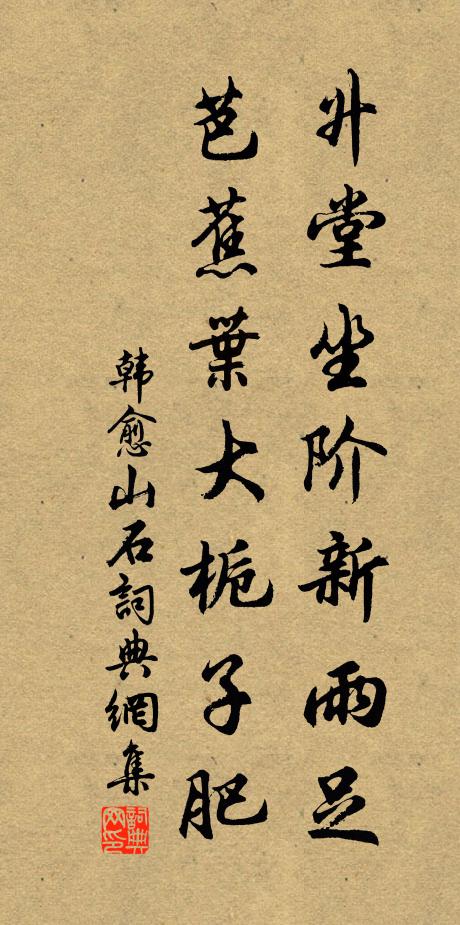 升堂坐阶新雨足
芭蕉葉大栀子肥
韩愈山石詞典網集
詞典网印